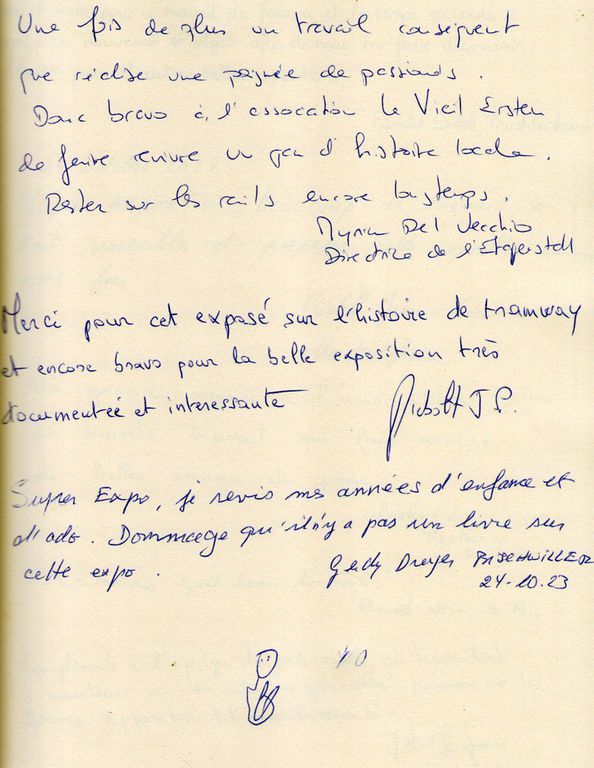 Une fois de plus un travail conséquent
que réalise une poignée de passionnés.
Donc bravo à l'association Le Vieil Erstein
de faire revivre un peu d'histoire locale.
Rester sur les rails encore longtemps.
Myriam Del Vecchio
Directrice de l'Etappenstall
Merci pour cet exposé sur l'histoire de tramway
et encore bravo pour la belle exposition très
documentée et interessante
J P.
Super Expo, je revis mes années d'enfance et
d'ado. Dommage qu'il n'y a pas un livre sur
cette expo.
Dreyer BISCHWILLER
24-10.23